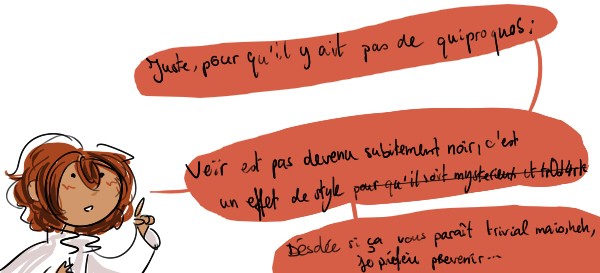 Juste, pour qu'il y ait pas de quiproquos :
Veïr est pas devenu subitement noir, c'est
un effet de style pour qu'il soit mysterieux et
Désolée si ça vous paraît trivial mais, heh,
je préfère prévenir...